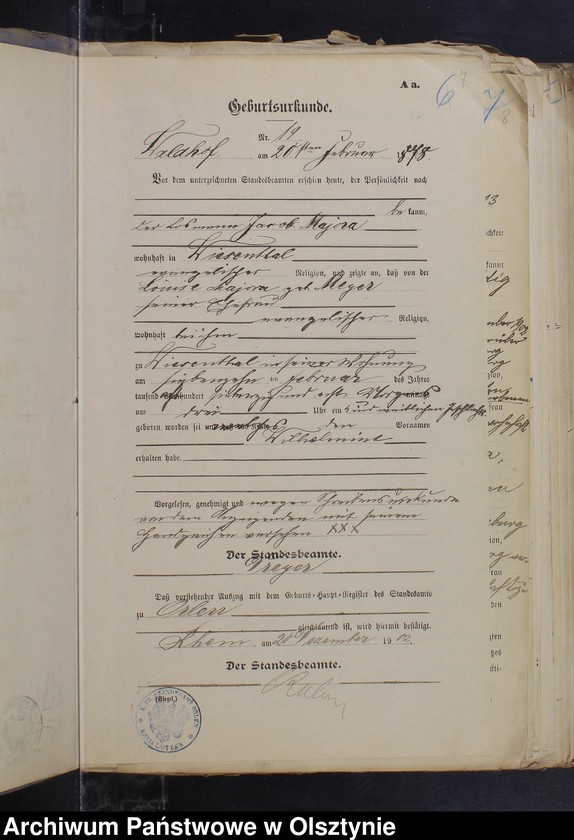 A a.
6 7
8
Geburtsurkunde.
Nr. 19
Waldhof am 20ten Februar 1878
Vor dem unterzeichneten Standesbeamten erschien heute, der Persönlichkeit nach
be kannt,
der Losmann Jacob Majora
wohnhaft in Wiesenthal
evangelischer Religion, und zeigte an, daß von der
Louise Majora geb. Meyer
seiner Ehefrau
evangelischer Religion,
wohnhaft bei ihm
zu Wiesenthal in seiner Wohnung
am siebenzehn ten Februar des Jahres
tausend achthundert siebenzig und acht
um drei Uhr ein Kind weiblichen Geschlechts
geboren worden sei den Vornamen
Wilhelmine
erhalten habe.
Vorgelesen, genehmigt und wegen Schreibensunkunde
von dem Anzeigenden mit seinem
Handzeichen versehen XXX
Der Standesbeamte.
Dreyer
Daß vorstehender Auszug mit dem Geburts-Haupt-Register des Standesamts
zu Orlen
gleichlautend ist, wird hiermit bestätigt.
Rhein am 20 Dezember 19
Der Standesbeamte.
(Siegel.)
Archiwum Państwowe w Olsztynie